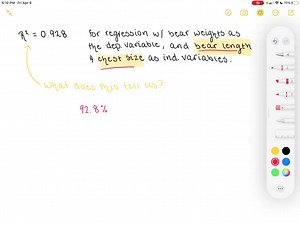 5:10 PM Fri Apr 8
r² = 0.928
for regression w/ bear weights as
the dep. variable, and bear length
& chest size as ind. variables.
What does this tell us?
92.8%